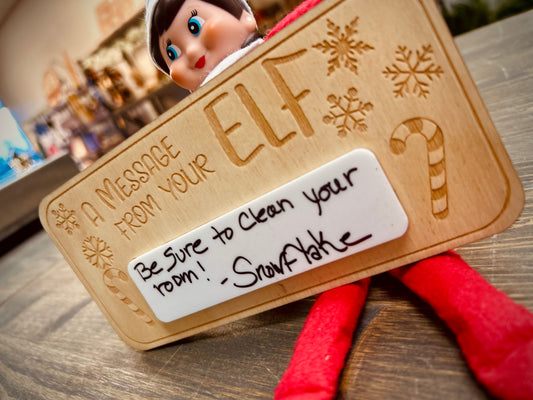 A MESSAGE
FROM YOUR
ELF
Be Sure to Clean your
room! -Snowflake